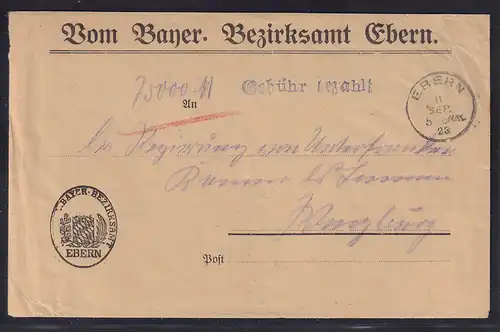 Vom Bayer. Bezirksamt Ebern.
75000 M
Gebühr bezahlt
EBERN
11
SEP.
5 NM.
23
An
Die Regierung von Unterfranken
Kammer des Innern
Würzburg
BAYER. BEZIRKSAMT
EBERN
Post